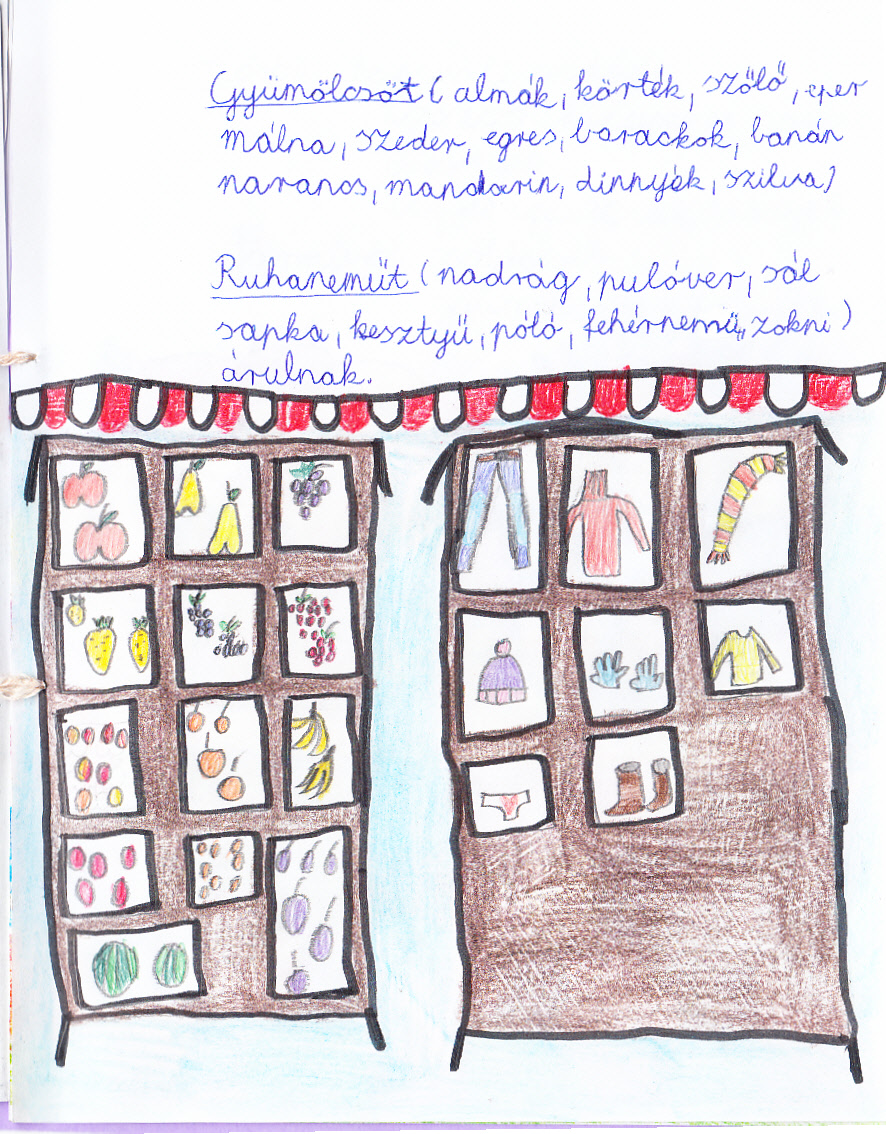 Gyümölcsöt ( almák, körték, szőlő, eper
málna, szeder, egres, barackok, banán
narancs, mandarin, dinnyék, szilva)
Ruhaneműt (nadrág, pulóver, sál
sapka, kesztyű, póló, fehérnemű, zokni)
árulnak.